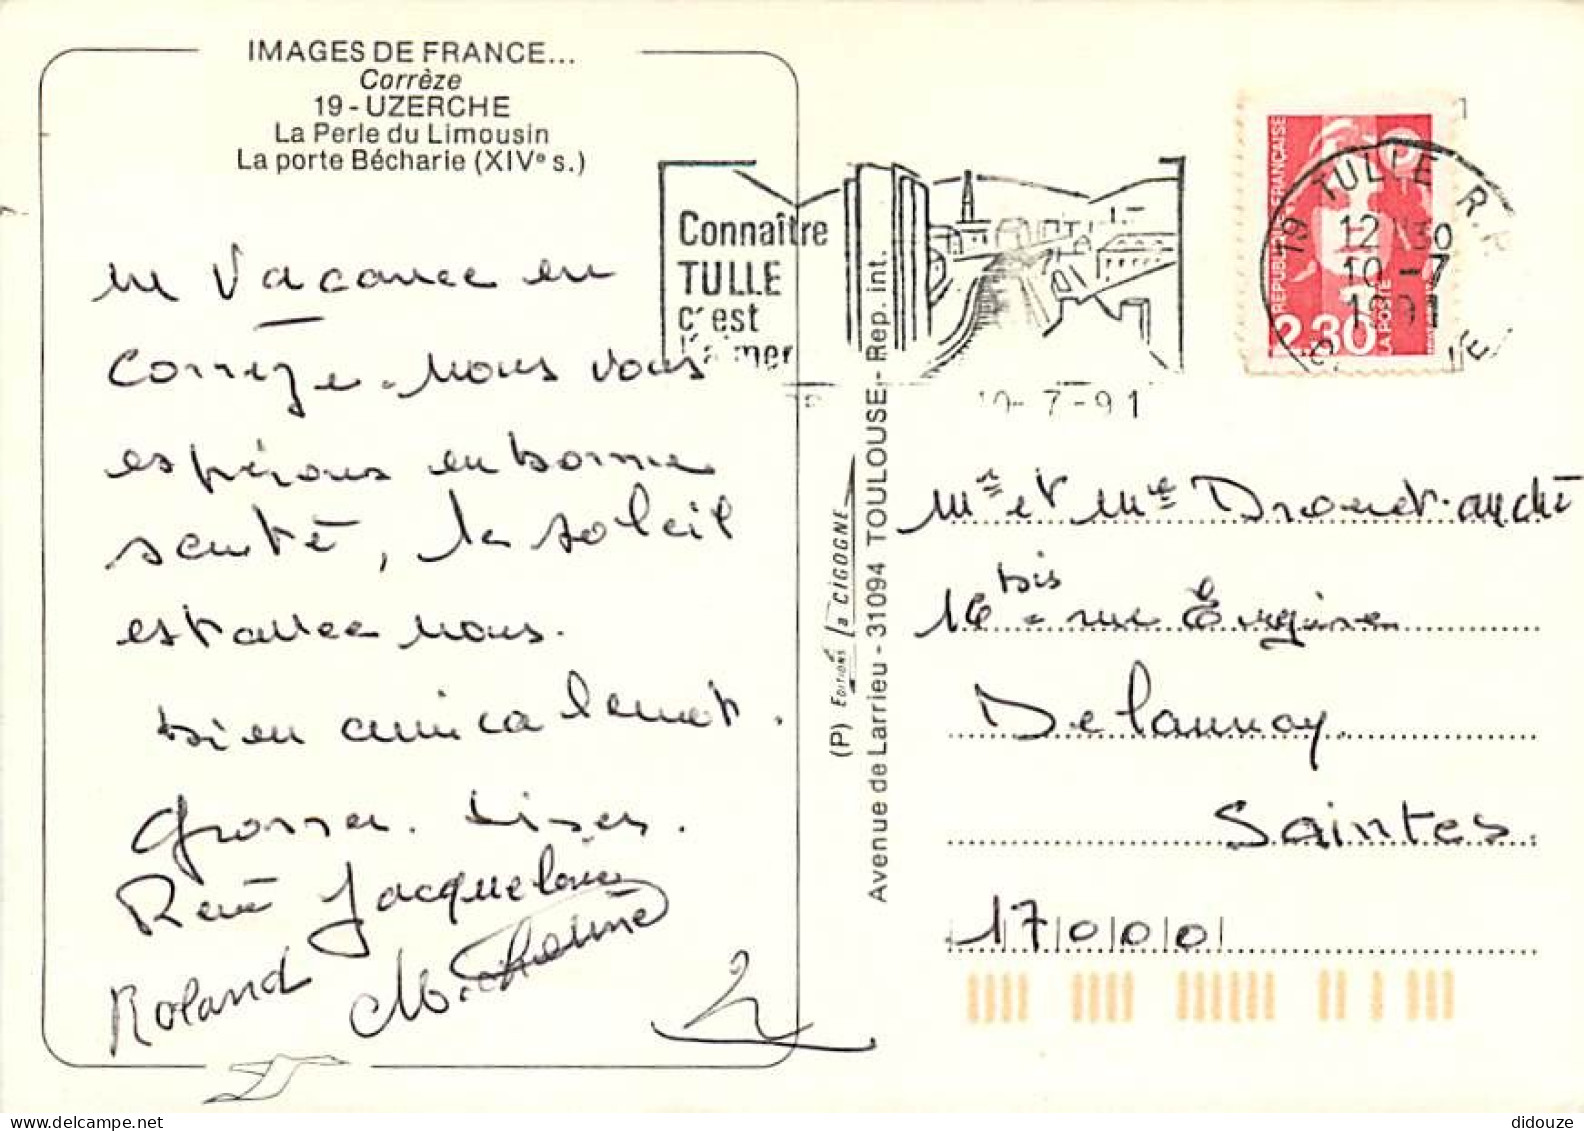 IMAGES DE FRANCE...
Corrèze
19 - UZERCHE
La Perle du Limousin
La porte Bécharie (XIVe s.)
en Vacance en
Correze. nous vous
espérons en bonne
santé, le soleil
est avec nous.
bien amicalement.
Grosses. Bises.
René Jacqueline
Roland Micheline
Connaître
TULLE
c'est
l'aimer
10-7-91
19 TULLE R.P.
12 H30
10-7
1991
CORREZE
REPUBLIQUE FRANÇAISE
2,30
LA POSTE
(P) EDITIONS la CIGOGNE
Avenue de Larrieu - 31094 TOULOUSE - Rep. int.
Mr et Mme Drouet. André
16 bis rue
Delaunay.
Saintes.
17000
didouze